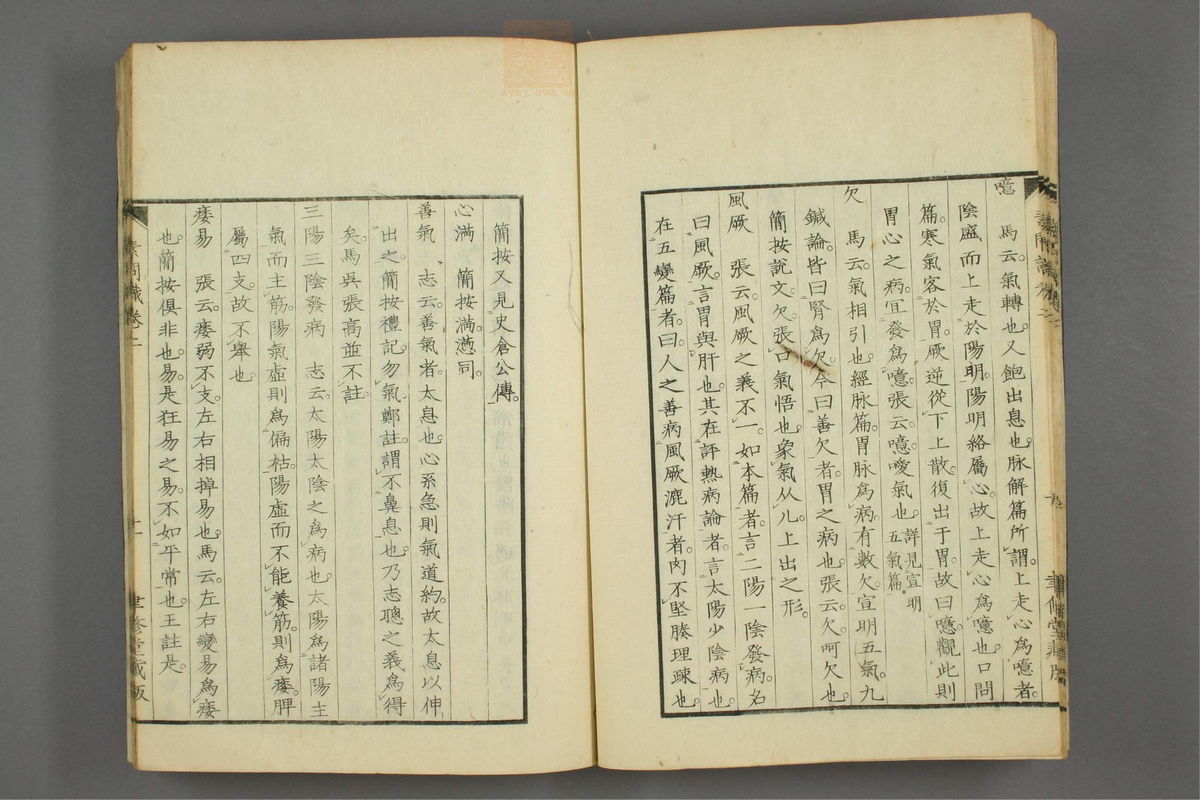 噫 馬云氣轉也又飽出息也脉解篇所謂上走心爲噫者
陰盛而上走於陽明陽明絡屬心故上走心爲噫也口問
篇寒氣客於胃厥逆從下上散復出于胃故曰噫觀此則
胃心之病冝發爲噫張云噫噯氣也詳見宣明五氣篇
欠 馬云氣相引也經脉篇胃脉爲病有數欠宣明五氣九
鍼論皆曰腎爲欠今曰善欠者胃之病也張云欠呵欠也
簡按說文欠張口氣悟也象氣从儿上出之形
風厥 張云風厥之義不一如本篇者言二陽一陰發病名
曰風厥言胃與肝也其在評熱病論者言太陽少陰病也
在五變篇者曰人之善病風厥漉汗者肉不堅腠理踈也
簡按又見史倉公傳
心滿 簡按滿懣同
善氣 志云善氣者太息也心系急則氣道約故太息以伸
出之簡按禮記勿氣鄭註謂不鼻息也乃志聰之義爲得
矣馬吳張高並不註
三陽三陰發病 志云太陽太陰之爲病也太陽爲諸陽主
氣而主筋陽氣虛則爲偏枯陽虛而不能養筋則爲痿脾
屬四支故不舉也
痿易 張云痿弱不支左右相掉易也馬云左右變易爲痿
也簡按俱非也易是狂易之易不如平常也王註是
素問識卷二
十一
聿修堂藏版